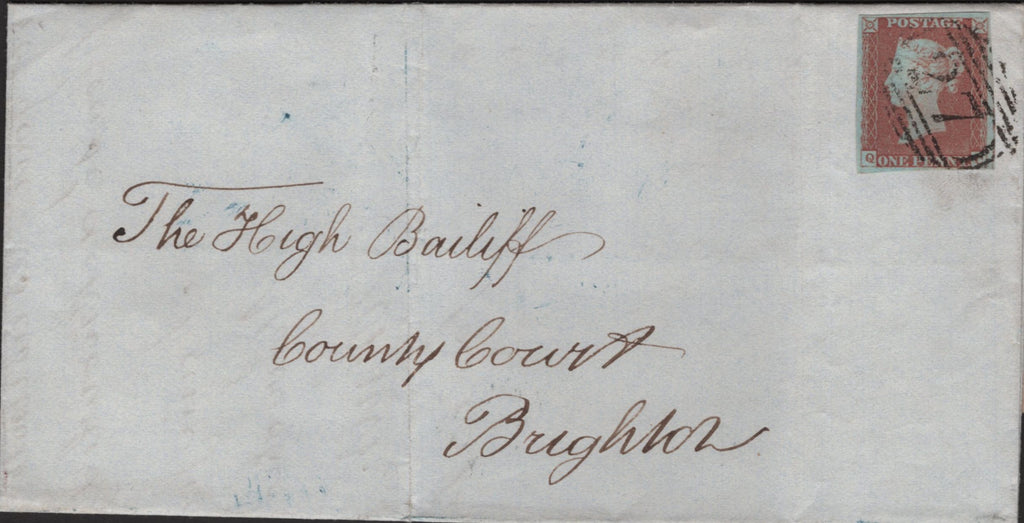 POSTAGE
Q
ONE PENNY
The High Bailiff
County Court
Brighton